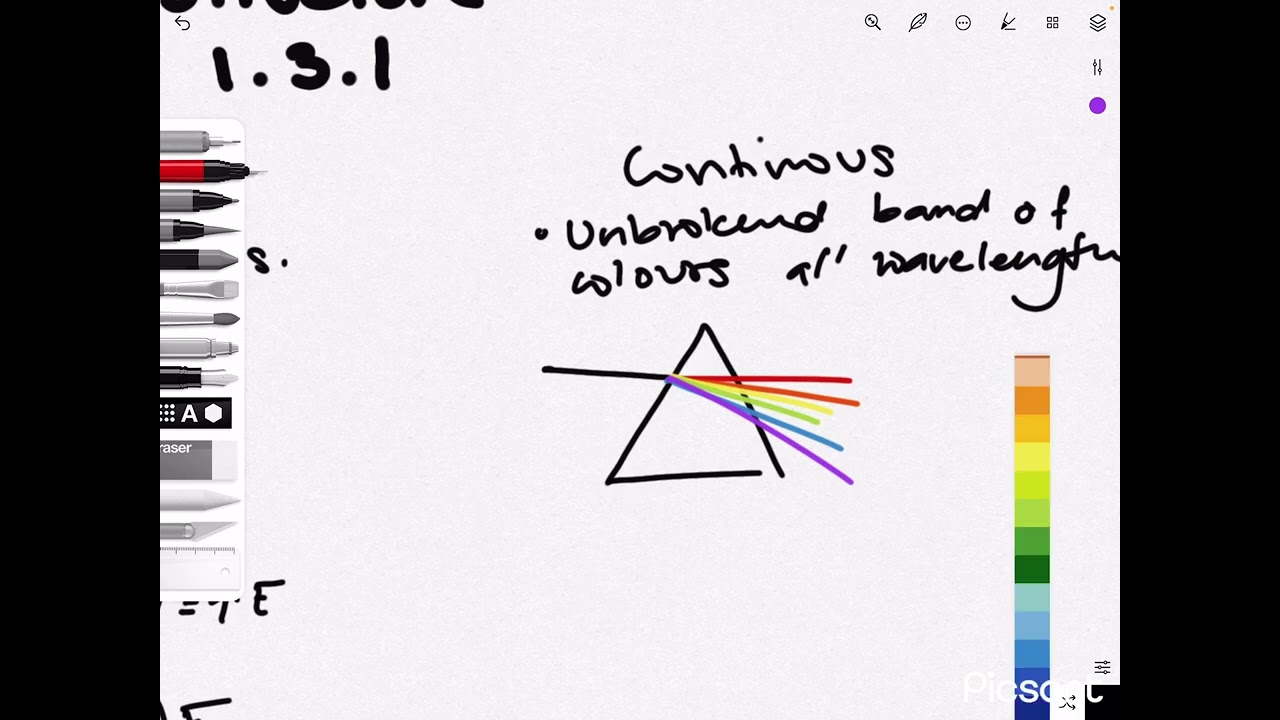 1.3.1
Continous
• Unbrokend band of
colours all wavelength
s.
A
raser
= ↑ E
E
Picsart